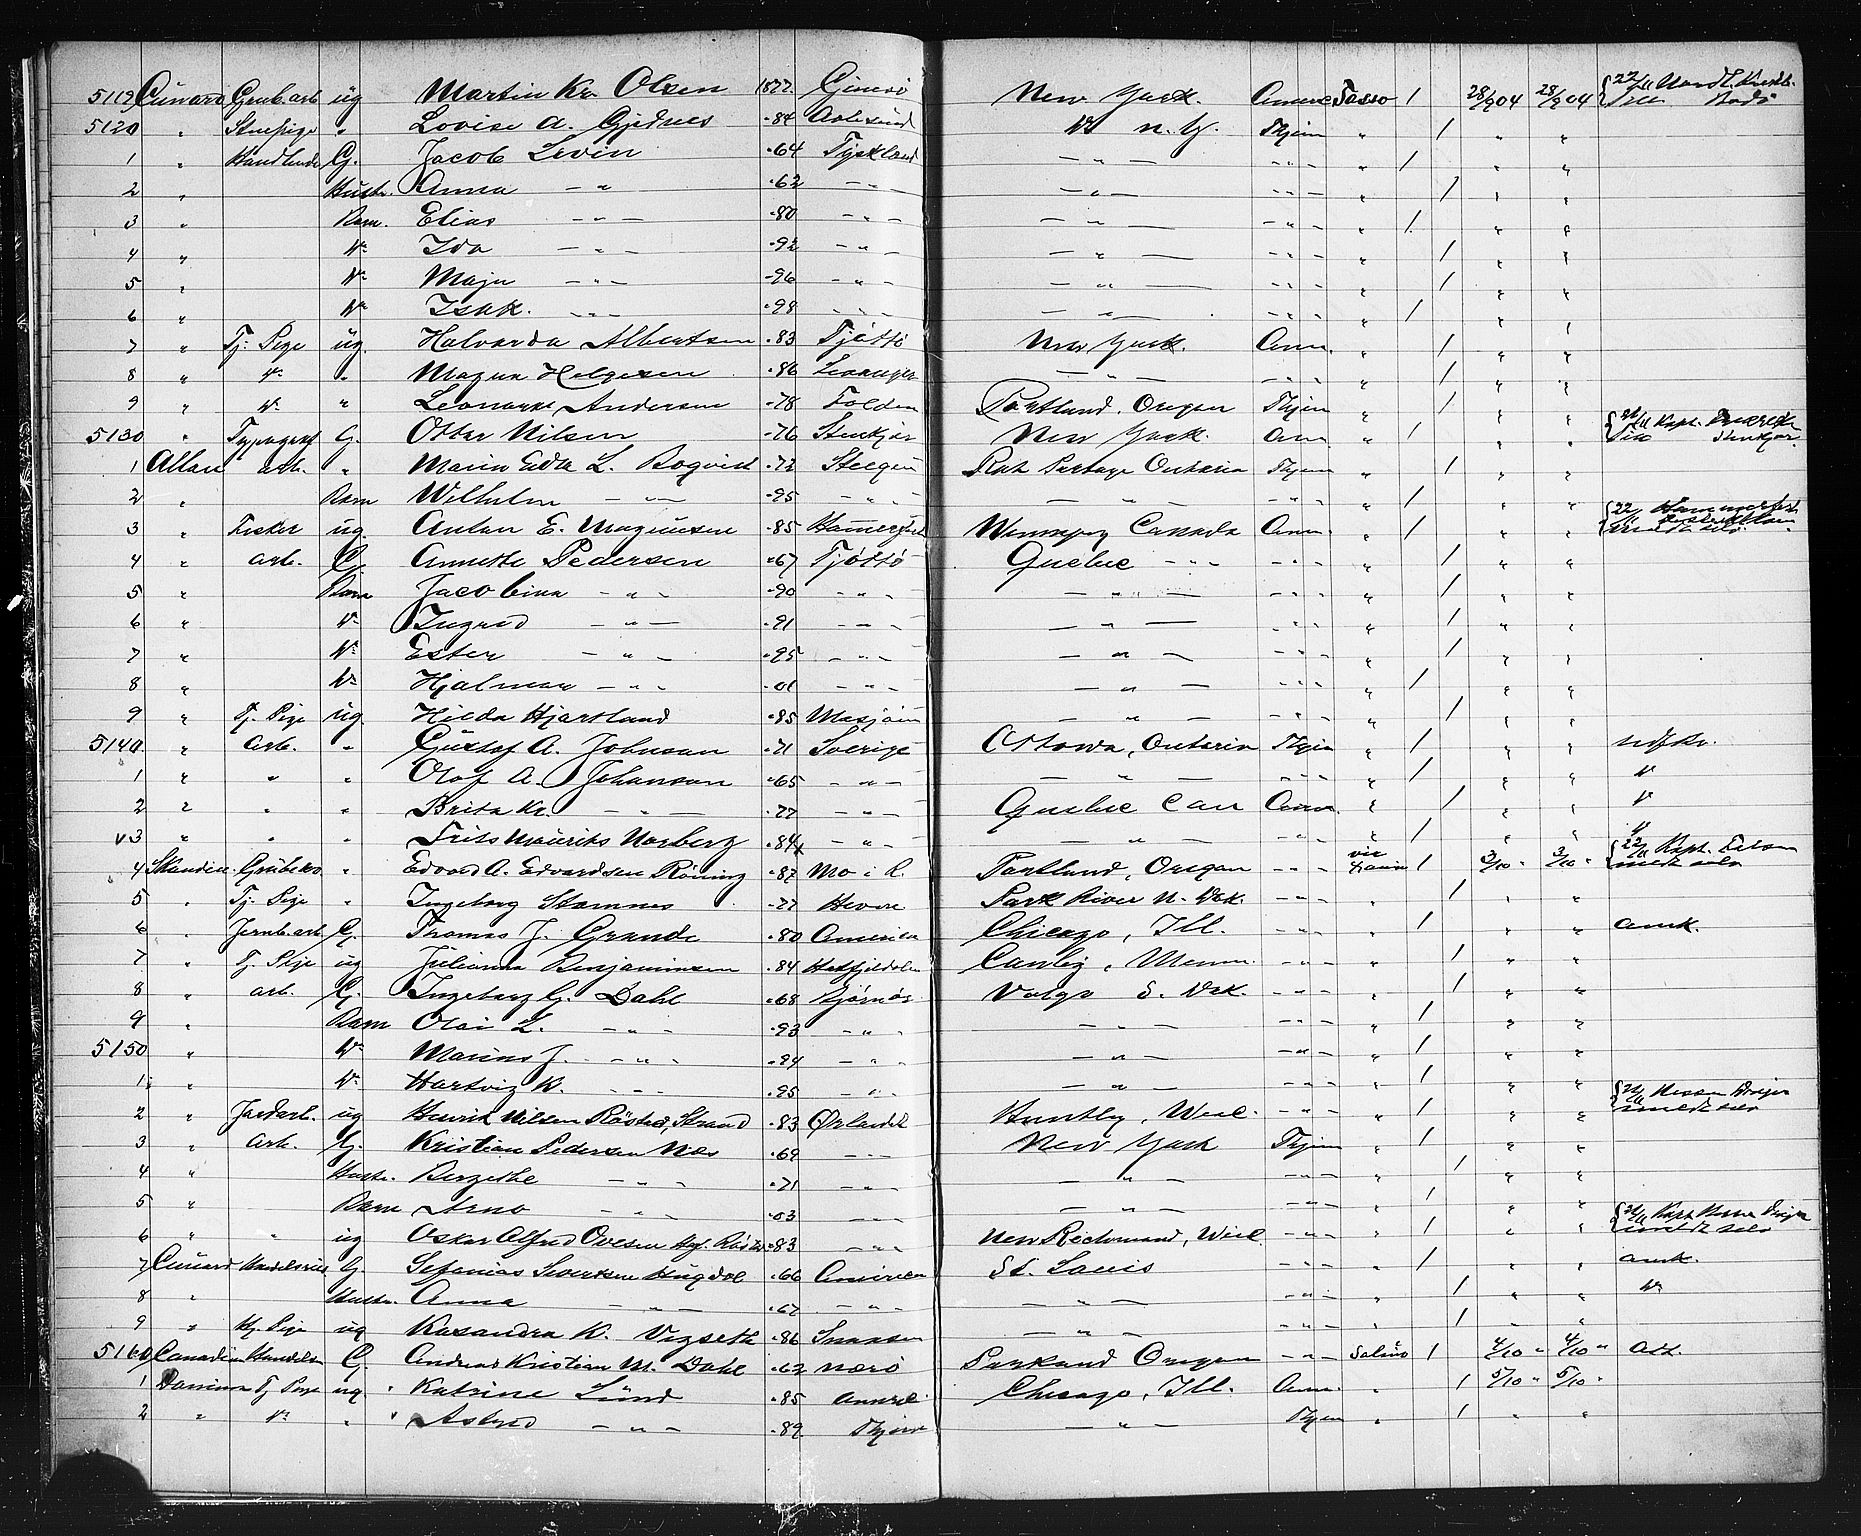 5119 Cunard Grub.arb. ug Martin Kr. Olsen 1877 Gimsö New York. Amerc Tasso / 28/9 04 28/9 04
5120 " Stuepige " Lovise A. Gjednes -84 Aalesund Do N. Y. Thjem " / " "
1 " Handlende G. Jacob Levin -64 Tyskland — " — - " - " / " "
2 " Hustr. Anna — " -62 — " - — " — - " - " / " "
3 " Barn. Elias — " — -80 — " - — " — - " - " / " "
4 " Do Ida — " — -92 — " — " — - " - " / " "
5 " Do Maja — " — -96 - " - — " — - " - " / " "
6 " Do Isak. - " - -98 - " - — " — - " - " / " "
7 " Tj. Pige ug. Halvarda Albertsen -83 Tjöttö New York. Am. " / " "
8 " Do " Magna Helgesen -86 Levanger — " — - " - " / " "
9 " Do " Leonarda Andersen -78 Folden Portland, Oregon Thjem " / " "
5130 " Typograf G. Ottar Nilsen -76 Stenkjær New York. Am " / " "
1 Allan arb. " Maren Edla L. Bogvist -72 Steigen Rat Portage Ontario Thjem " / " "
2 " Barn Wilhelm — " — -95 - " - — " — - " - " / " "
3 " Fisker ug. Anton E. Magnusen -85 Hammerfest Winnipeg Canada Am. " / " "
4 " arb. G. Annette Pedersen -67 Tjöttö Quebec - " - - " - " / " "
5 " Barn Jacobina - " - -90 - " - — " — - " - " / " "
6 " Do Ingrid — " — -91 - " - — " — - " - " / " "
7 " Do Ester — " - -95 - " - — " — - " - " / " "
8 " Do Hjalmar — " - -01 - " - — " — - " - " / " "
9 " Tj. Pige ug. Hilda Hjartland -85 Mosjöen — " — - " - " / " "
5140 " Arb. " Gustof A. Johnson -71 Sverige Ottowa, Ontario Thjem " / " "
1 " " " Olof A. Johanson -65 - " - — " — - " - " / " " Do
2 " " " Brita Kr. — " — -77 - " - Quebec Can Am " / " " Do
3 " " " Frits Mauritz Norberg -84 - " - — " — - " - " / " " "
4 Skandin. Grubearb " Edvard A. Edvardsen Röning -87 Mo i R. Portland, Oregon - " - / 3/10 " 3/10 "
5 " Tj. Pige " Ingeborg Stamnes -77 Hevne Park River N. Dak. - " - " / " "
6 " Jernb.arb G. Thomas J. Grande -80 Amerika Chicago, Ill. - " - " / " " amk.
7 " Tj. Pige ug Julianna Benjaminsen -84 Hatfjeldalen Canby, Minn. - " - " / " "
8 " arb. G. Ingeborg G. Dahl -68 Bjørnør Volga S. Dak. - " - " / " "
9 " Barn Olai L. - " - -93 - " - — " — - " - " / " "
5150 " Do Marius J. - " - -94 - " - — " — - " - " / " "
1 " Do Hartvig K. - " - -95 - " - — " — - " - " / " "
2 " Jordarb. ug Henrik Nilsen Röstad, Strand -83 Ørlandet Huntley, Wisl. - " - " / " "
3 " Arb. G. Kristian Pedersen Næs -69 - " - New York Thjem " / " "
4 " Hustr. Bergithe - " - -71 - " - — " — - " - " / " "
5 " Barn Arno - " - -03 - " - — " — - " - " / " "
6 " " ug Oskar Alfred Ovesen -83 - " - New Richmond, Wisl. - " - " / " "
7 Cunard Handelsrei G. Sefanias Sivertsen Hugdal -66 Amerika St. Louis - " - " / " " amk.
8 " Hustr. Anna — " — -67 — " — — " — - " - " / " " Do
9 " Tj. Pige ug Kasandra K. Vigseth -86 Snaasen — " — - " - " / " "
5160 Canadian Handelsm G. Andreas Kristian M. Dahl -62 Nærö Parkland Oregon - " - Salmo / 4/10 " 4/10 "
1 Dominion Tj. Pige ug. " Katrine Lund -85 Chicago, Ill. Am. " / 5/10 " 5/10 "
2 " Do " " Astrid - " - -89 — " — Thjem " / " "